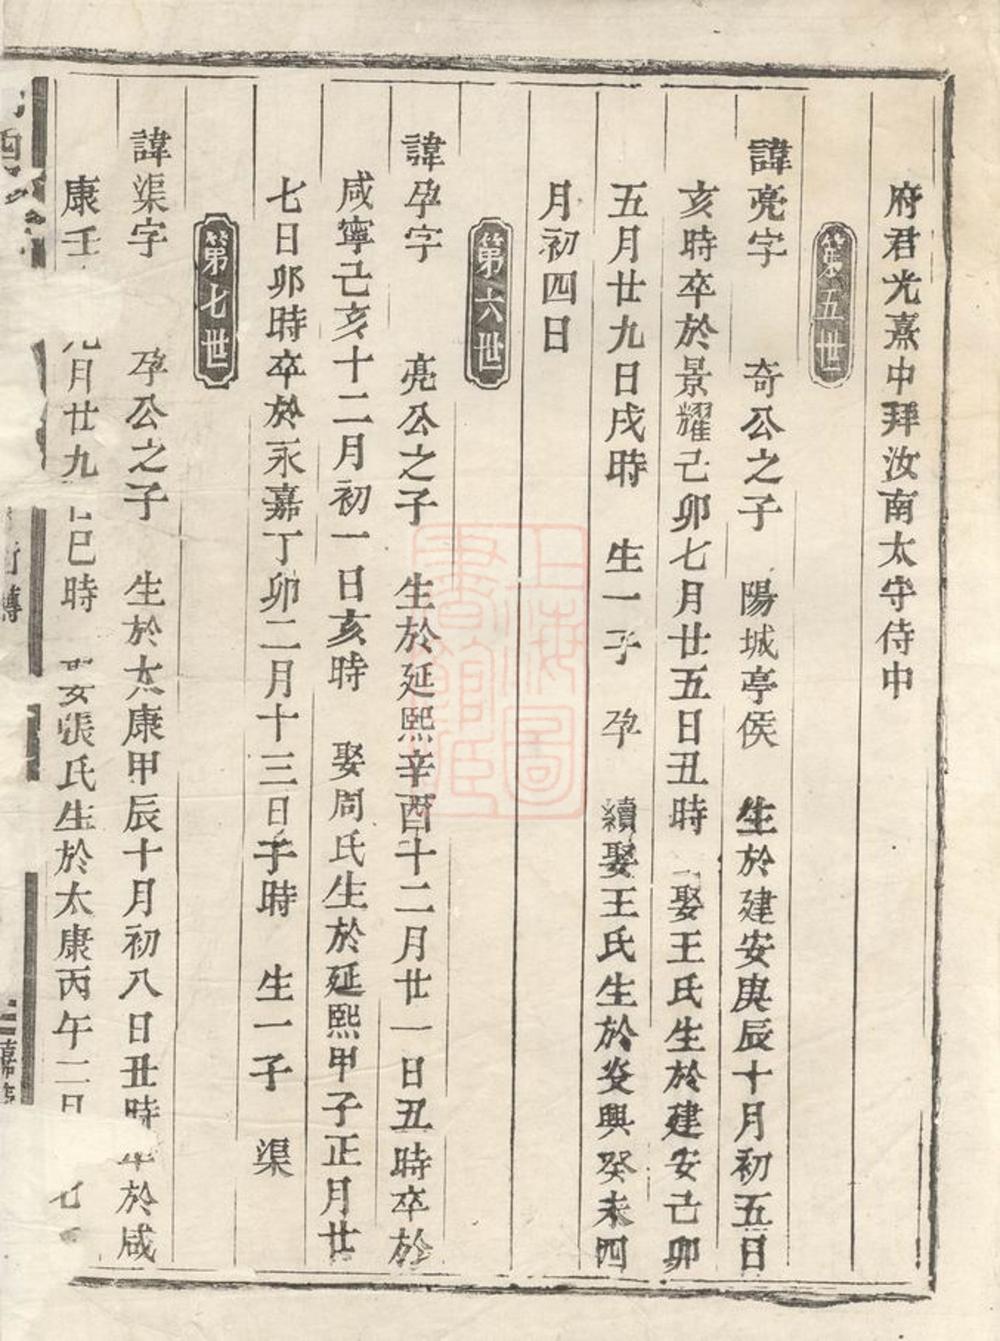 府君光熹中拜汝南太守侍中
第五世
諱亮字 奇公之子 陽城亭侯 生於建安庚辰十月初五日
亥時卒於景耀己卯七月廿五日丑時 娶王氏生於建安己卯
五月廿九日戌時 生一子 孕 續娶王氏生於炎興癸未四
月初四日
第六世
諱孕字 亮公之子 生於延熙辛酉十二月廿一日丑時卒於
咸寧己亥十二月初一日亥時 娶周氏生於延熙甲子正月廿
七日卯時卒於永嘉丁卯二月十三日子時 生一子 渠
第七世
諱渠字 孕公之子 生於太康甲辰十月初八日丑時卒於咸
康壬 九月廿九 巳時 娶張氏生於太康丙午二月 七
上海圖書館藏